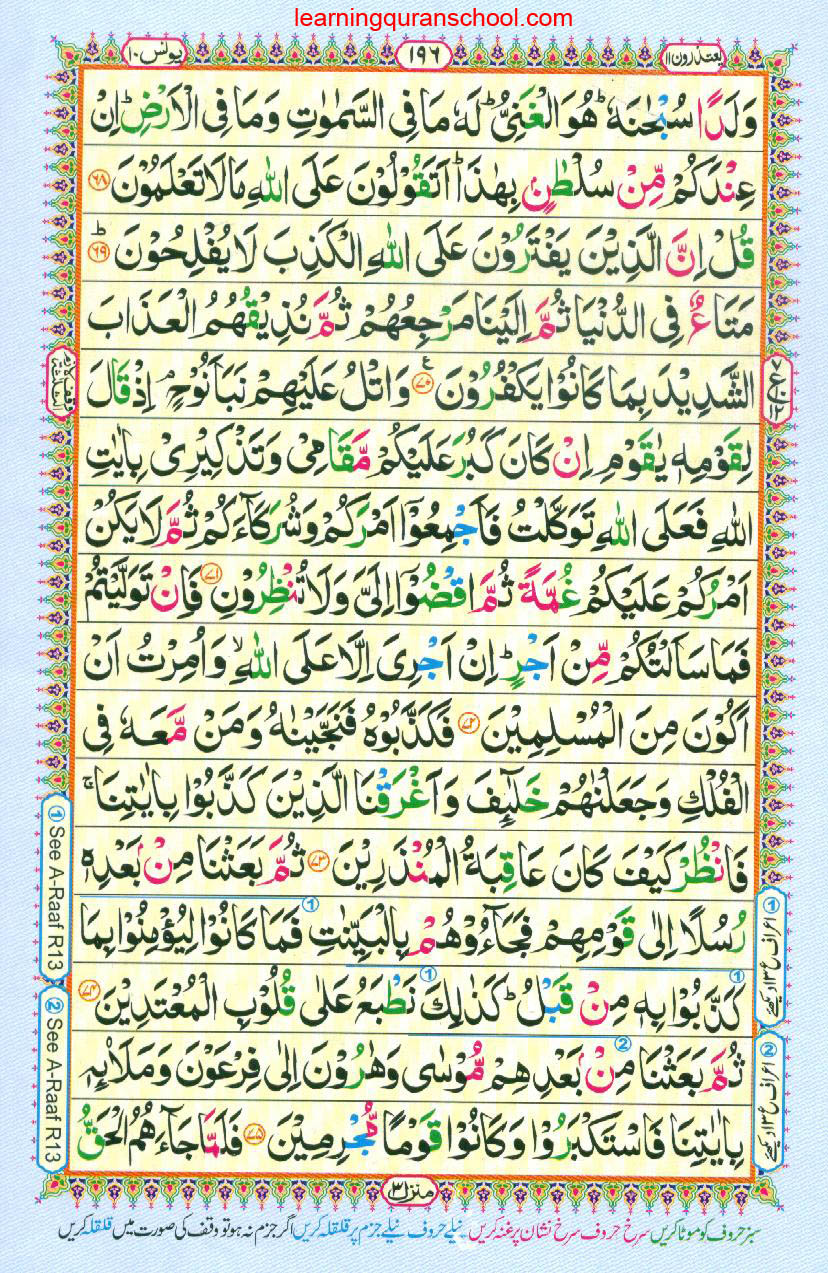 learningquranschool.com
يعتذرون ١١
١٩٦
يونس ١٠
وَلَدًا سُبْحٰنَهٗ ؕ هُوَ الْغَنِىُّ ؕ لَهٗ مَا فِى السَّمٰوٰتِ وَمَا فِى الْاَرْضِ ؕ اِنْ
عِنْدَكُمْ مِّنْ سُلْطٰنٍۭ بِهٰذَا ؕ اَتَقُوْلُوْنَ عَلَى اللّٰهِ مَا لَا تَعْلَمُوْنَ ۶۸
قُلْ اِنَّ الَّذِيْنَ يَفْتَرُوْنَ عَلَى اللّٰهِ الْكَذِبَ لَا يُفْلِحُوْنَ ؕ ۶۹
مَتَاعٌ فِى الدُّنْيَا ثُمَّ اِلَيْنَا مَرْجِعُهُمْ ثُمَّ نُذِيْقُهُمُ الْعَذَابَ
الشَّدِيْدَ بِمَا كَانُوْا يَكْفُرُوْنَ ۷۰ وَاتْلُ عَلَيْهِمْ نَبَاَ نُوْحٍ ۘ اِذْ قَالَ
لِقَوْمِهٖ يٰقَوْمِ اِنْ كَانَ كَبُرَ عَلَيْكُمْ مَّقَامِىْ وَتَذْكِيْرِىْ بِاٰيٰتِ
اللّٰهِ فَعَلَى اللّٰهِ تَوَكَّلْتُ فَاَجْمِعُوْۤا اَمْرَكُمْ وَشُرَكَآءَكُمْ ثُمَّ لَا يَكُنْ
اَمْرُكُمْ عَلَيْكُمْ غُمَّةً ثُمَّ اقْضُوْۤا اِلَىَّ وَلَا تُنْظِرُوْنِ ۷۱ فَاِنْ تَوَلَّيْتُمْ
فَمَا سَاَلْتُكُمْ مِّنْ اَجْرٍ ؕ اِنْ اَجْرِىَ اِلَّا عَلَى اللّٰهِ ۙ وَاُمِرْتُ اَنْ
اَكُوْنَ مِنَ الْمُسْلِمِيْنَ ۷۲ فَكَذَّبُوْهُ فَنَجَّيْنٰهُ وَمَنْ مَّعَهٗ فِى
الْفُلْكِ وَجَعَلْنٰهُمْ خَلٰٓئِفَ وَاَغْرَقْنَا الَّذِيْنَ كَذَّبُوْا بِاٰيٰتِنَا ۚ
فَانْظُرْ كَيْفَ كَانَ عَاقِبَةُ الْمُنْذَرِيْنَ ۷۳ ثُمَّ بَعَثْنَا مِنْۢ بَعْدِهٖ
رُسُلًا اِلٰى قَوْمِهِمْ فَجَآءُوْهُمْ بِالْبَيِّنٰتِ فَمَا كَانُوْا لِيُؤْمِنُوْا بِمَا
كَذَّبُوْا بِهٖ مِنْ قَبْلُ ؕ كَذٰلِكَ نَطْبَعُ عَلٰى قُلُوْبِ الْمُعْتَدِيْنَ ۷۴
ثُمَّ بَعَثْنَا مِنْۢ بَعْدِهِمْ مُّوْسٰى وَهٰرُوْنَ اِلٰى فِرْعَوْنَ وَمَلَا۟ئِهٖ
بِاٰيٰتِنَا فَاسْتَكْبَرُوْا وَكَانُوْا قَوْمًا مُّجْرِمِيْنَ ۷۵ فَلَمَّا جَآءَهُمُ الْحَقُّ
① See A-Raaf R13
② See A-Raaf R13
منزل ٣
سبز حروف کو موٹا کریں سرخ حروف سرخ نشان پر غنہ کریں نیلے حروف نیلے جزم پر قلقلہ کریں اگر جزم نہ ہو تو وقف کی صورت میں قلقلہ کریں